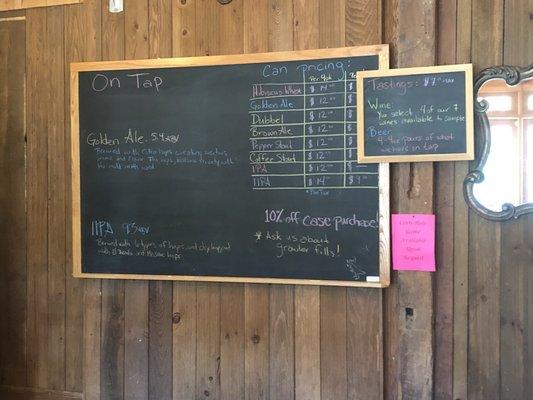 On Tap
Golden Ale 5.4%ABV
Brewed with Citra hops creating
aroma and flavor. The hops, balance nicely with
the mild malts used
IIPA 9.5%ABV
Brewed with 6 types of hops, and dry hopped
with El Dorado and Mosaic hops
Can pricing:
Per 4pk
Hibiscus Wheat $14
Golden Ale $12
Dubbel $12
Brown Ale $12
Pepper Stout $12
Coffee Stout $12
IPA $12
IIPA $14
10% off case purchase!
* Ask us about
growler fills!
Tastings: $7
Wine:
You select 4 of our 7
wines available to sample
Beer:
4-4oz pours of what
we have in tap
Upon
Request